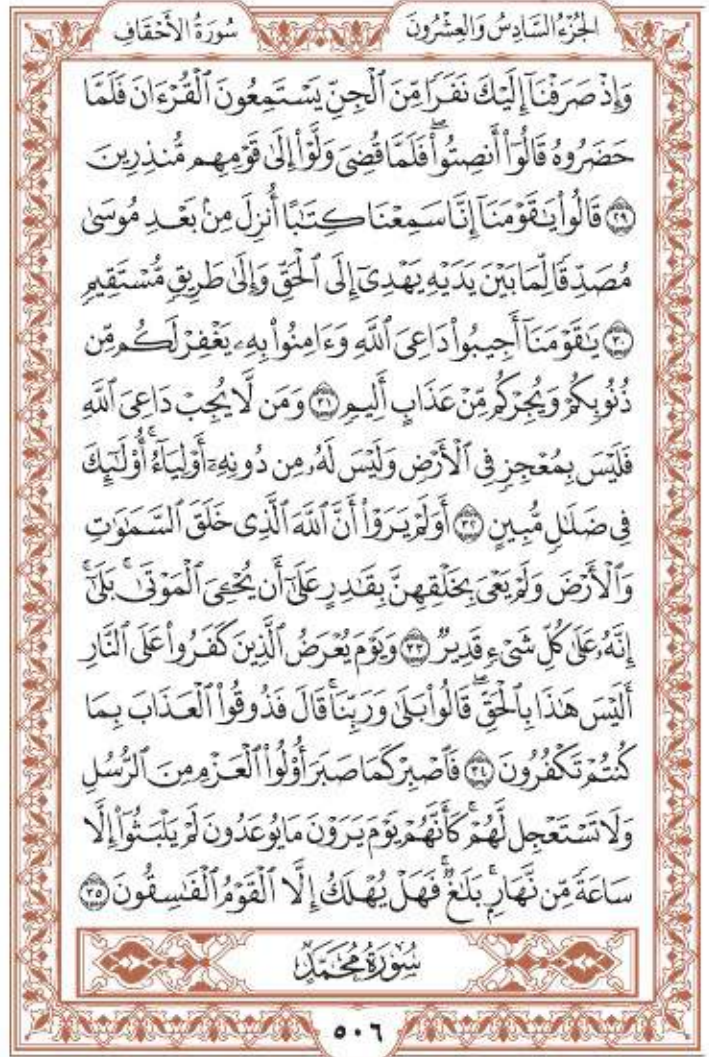 الجُزْءُ السَّادِسُ وَالعِشْرُونَ سُورَةُ الأَحْقَافِ
وَإِذْ صَرَفْنَآ إِلَيْكَ نَفَرًا مِّنَ ٱلْجِنِّ يَسْتَمِعُونَ ٱلْقُرْءَانَ فَلَمَّا
حَضَرُوهُ قَالُوٓاْ أَنصِتُواْۖ فَلَمَّا قُضِىَ وَلَّوْاْ إِلَىٰ قَوْمِهِم مُّنذِرِينَ
٢٩ قَالُواْ يَٰقَوْمَنَآ إِنَّا سَمِعْنَا كِتَٰبًا أُنزِلَ مِنۢ بَعْدِ مُوسَىٰ
مُصَدِّقًا لِّمَا بَيْنَ يَدَيْهِ يَهْدِىٓ إِلَى ٱلْحَقِّ وَإِلَىٰ طَرِيقٍ مُّسْتَقِيمٍ
٣٠ يَٰقَوْمَنَآ أَجِيبُواْ دَاعِىَ ٱللَّهِ وَءَامِنُواْ بِهِۦ يَغْفِرْ لَكُم مِّن
ذُنُوبِكُمْ وَيُجِرْكُم مِّنْ عَذَابٍ أَلِيمٍ ٣١ وَمَن لَّا يُجِبْ دَاعِىَ ٱللَّهِ
فَلَيْسَ بِمُعْجِزٍ فِى ٱلْأَرْضِ وَلَيْسَ لَهُۥ مِن دُونِهِۦٓ أَوْلِيَآءُۚ أُوْلَٰٓئِكَ
فِى ضَلَٰلٍ مُّبِينٍ ٣٢ أَوَلَمْ يَرَوْاْ أَنَّ ٱللَّهَ ٱلَّذِى خَلَقَ ٱلسَّمَٰوَٰتِ
وَٱلْأَرْضَ وَلَمْ يَعْىَ بِخَلْقِهِنَّ بِقَٰدِرٍ عَلَىٰٓ أَن يُحْـِۧىَ ٱلْمَوْتَىٰۚ بَلَىٰٓ
إِنَّهُۥ عَلَىٰ كُلِّ شَىْءٍ قَدِيرٌ ٣٣ وَيَوْمَ يُعْرَضُ ٱلَّذِينَ كَفَرُواْ عَلَى ٱلنَّارِ
أَلَيْسَ هَٰذَا بِٱلْحَقِّۖ قَالُواْ بَلَىٰ وَرَبِّنَاۚ قَالَ فَذُوقُواْ ٱلْعَذَابَ بِمَا
كُنتُمْ تَكْفُرُونَ ٣٤ فَٱصْبِرْ كَمَا صَبَرَ أُوْلُواْ ٱلْعَزْمِ مِنَ ٱلرُّسُلِ
وَلَا تَسْتَعْجِل لَّهُمْۚ كَأَنَّهُمْ يَوْمَ يَرَوْنَ مَا يُوعَدُونَ لَمْ يَلْبَثُوٓاْ إِلَّا
سَاعَةً مِّن نَّهَارٍۭۚ بَلَٰغٌۚ فَهَلْ يُهْلَكُ إِلَّا ٱلْقَوْمُ ٱلْفَٰسِقُونَ ٣٥
سُورَةُ مُحَمَّدٍ
٥٠٦